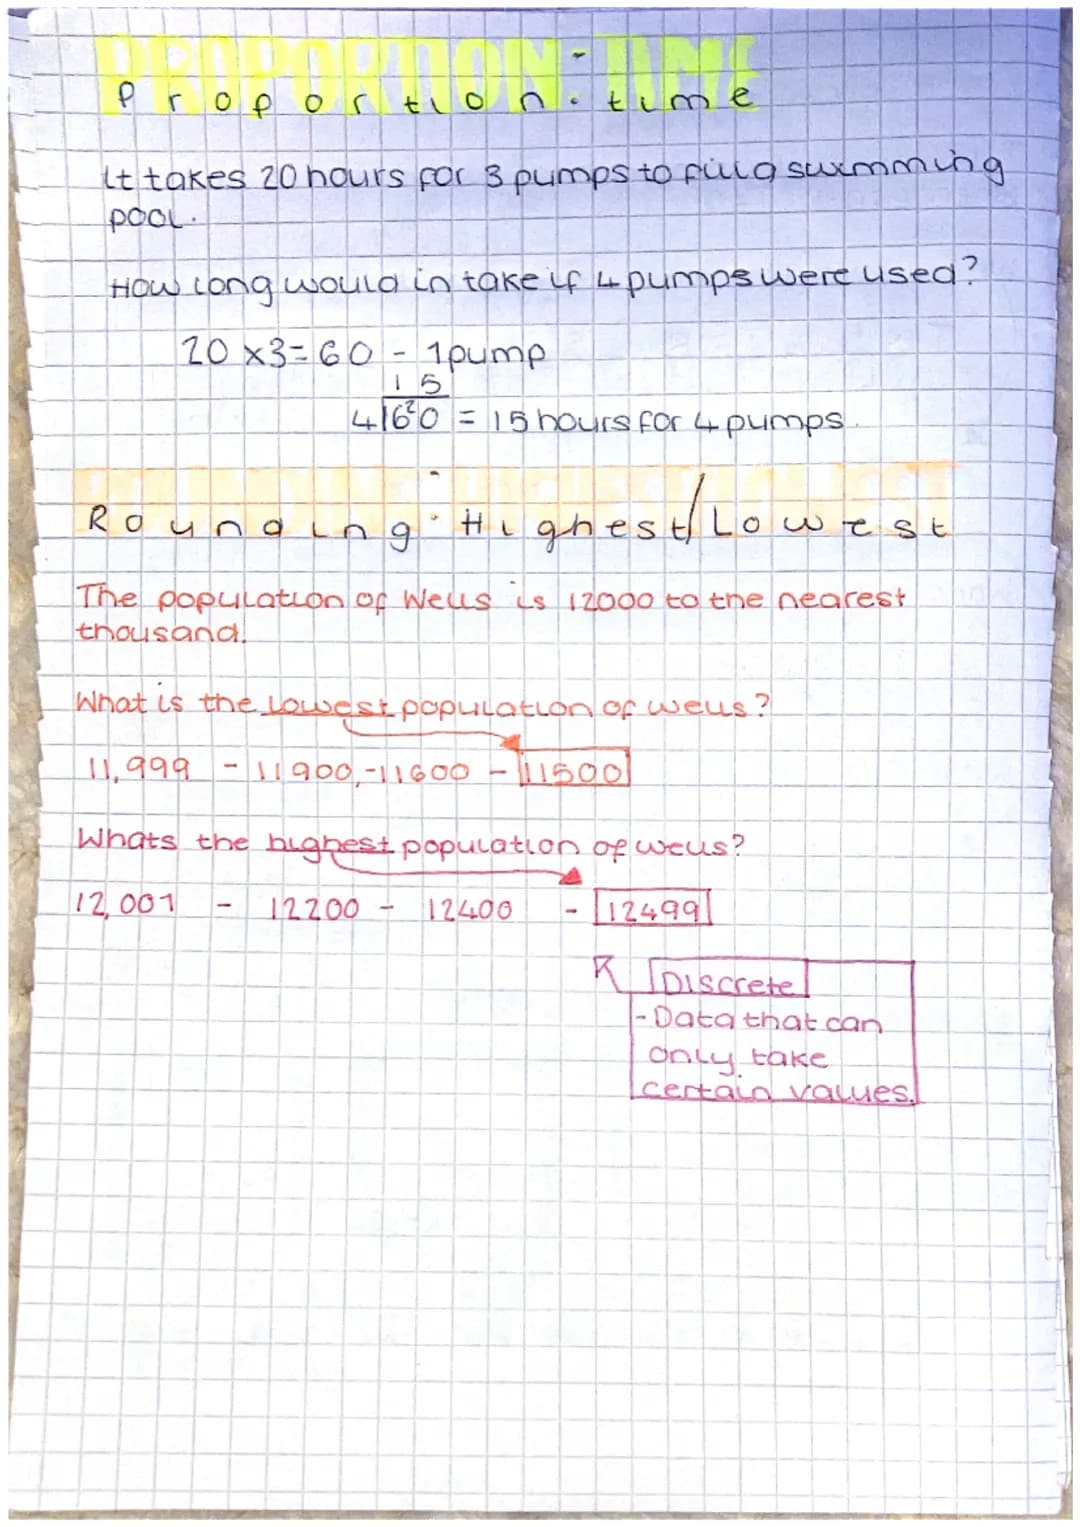 PROPORTION: TIME
Proportion: time
It takes 20 hours for 3 pumps to fill a swimming
pool.
How long would in take if 4 pumps were used?
20 x3=60 - 1pump
15
4 6²0 = 15 hours for 4 pumps.
Rounding: Highest/Lowest
The population of Wells is 12000 to the nearest
thousand.
What is the lowest population of wells?
11,999 - 11900,-11600 - 11500
Whats the highest population of wells?
12,001 - 12200 - 12400 - 12499
Discrete
- Data that can
only take
certain values.